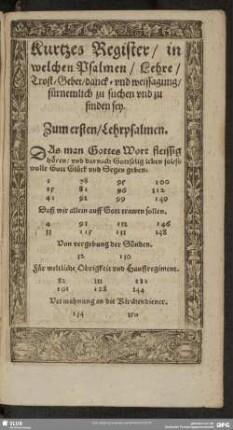 Kurtzes Register / in
welchen Psalmen / Lehre /
Trost / Gebet / danck- vnd weissagung /
fürnemlich zu suchen vnd zu
finden sey.
Zum ersten / Lehrpsalmen.
Das man Gottes Wort fleissig
hören / vnd darnach Gottselig leben
wolle Gott Glück vnd Segen geben.
1 78 95 100
15 81 96 112
41 92 99 149
Daß wir allein auff Gott trawen sollen.
4 91 146
11 115 148
Von vergebung der Sünden.
130
Für weltliche Obrigkeit vnd Haußregiment.
82 111
101 128 144
Vermahnung an die Kirchendiener.
134
SLUB